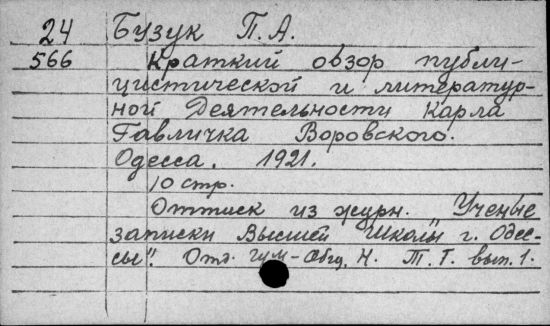 24 Бузук П.А.
566 Краткий обзор публи-
цистической и литератур-
ной деятельности Карла
Гавличка Воровского.
Одесса. 1921.
10 стр.
Оттиск из журн. "Ученые
записки Высшей Школы г. Одес-
сы". Отд. гум.-общ. Н. Т. I. вып. 1.